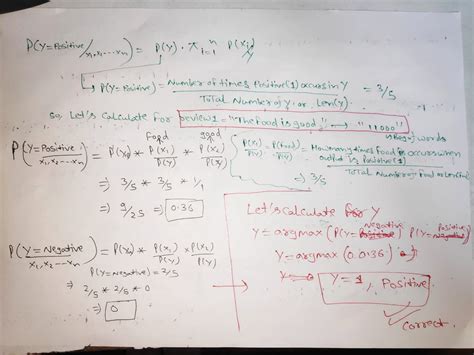 P(Y=Positive/x1,x2...xn) = P(Y) · π i=1 n P(xi/Y)
P(Y=Positive) = Number of times Positive(1) occurs in Y / Total Number of Y or Len(Y) = 3/5
so, Let's Calculate for review1 = "The Food is good" → "11000"
Bag of words
Food good
P(Y=Positive/x1,x2...xn) = P(Y) * P(x1)/P(Y) * P(x2)/P(Y)
P(x1)/P(Y) = P(Food)/P(Y) = How many times food is occurs when output is Positive(1) / Total Number of Food or Len(Food)
⇒ 3/5 * 3/5 * 1/1
⇒ 3/5
⇒ 9/25 ⇒ 0.36
P(Y=Negative/x1,x2...xn) = P(Y) * P(x1)/P(Y) * P(x2)/P(Y)
P(Y=Negative) = 2/5
⇒ 2/5 * 2/5 * 0
⇒ 0
Let's Calculate for Y
Y = argmax (P(Y=Negative) P(Y=Positive)
Y = argmax (0.0136)
Y = 1, Positive
Correct.